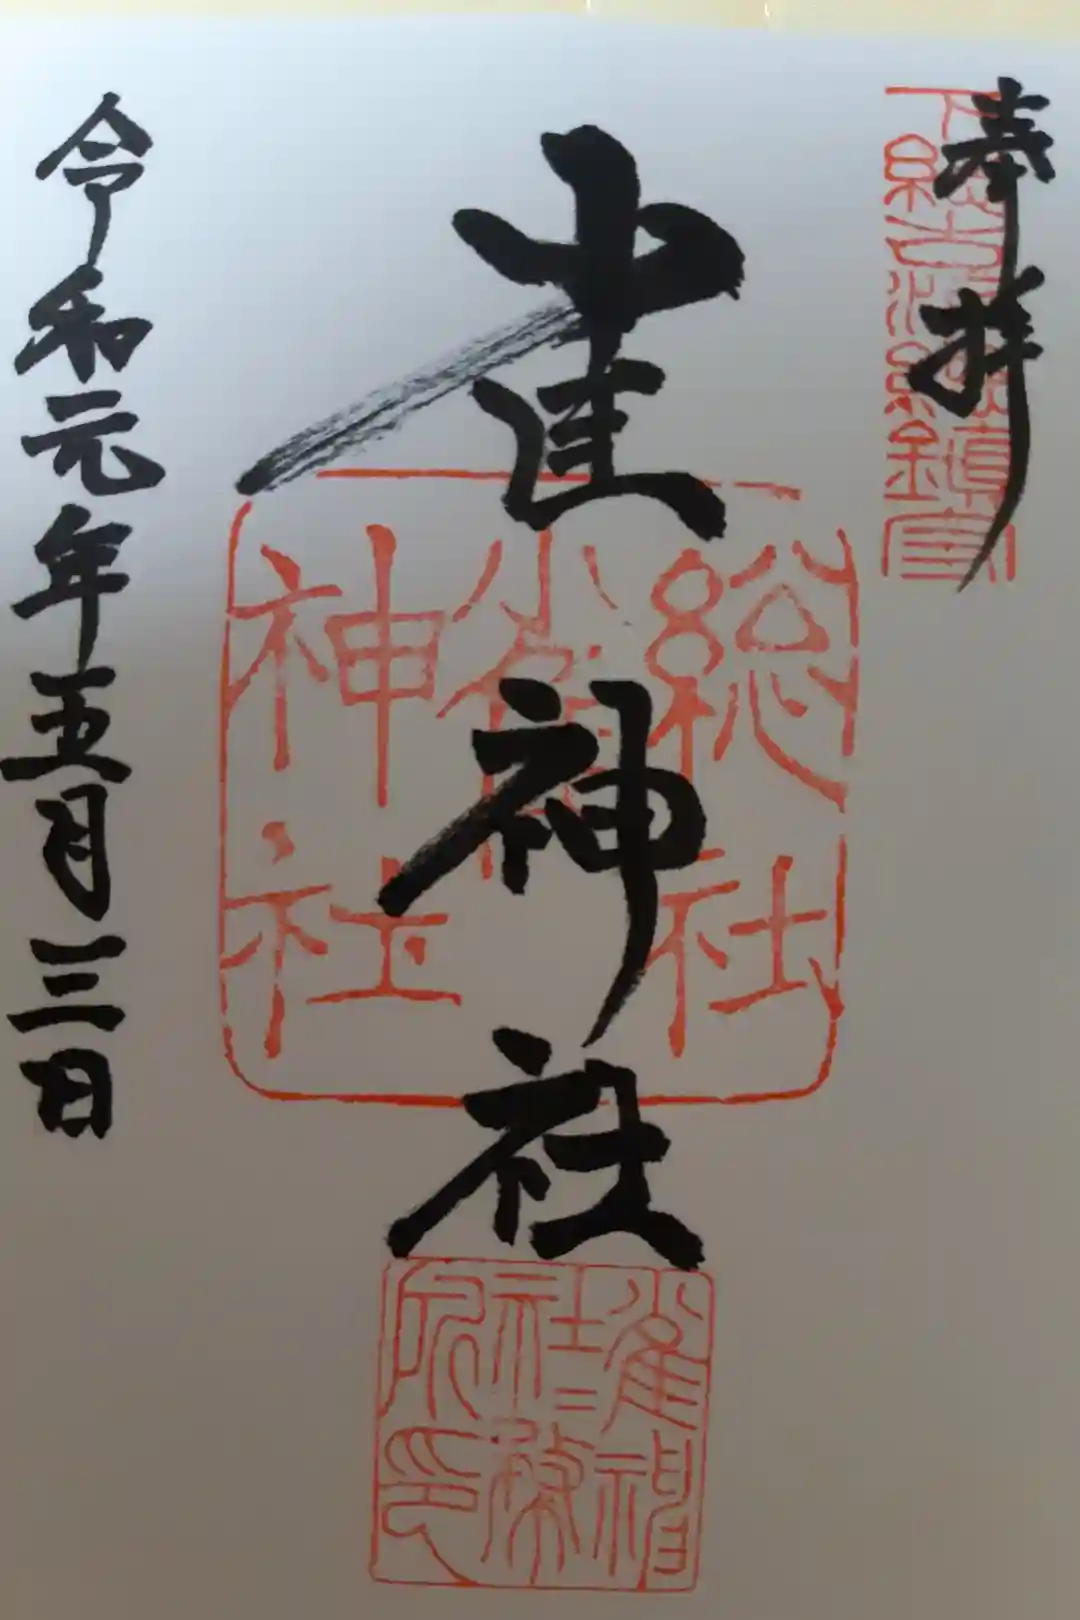 奉拝
下総古河総鎮守
雀神社
総社
雀
神社
雀神
社社務
所印
令和元年五月三日